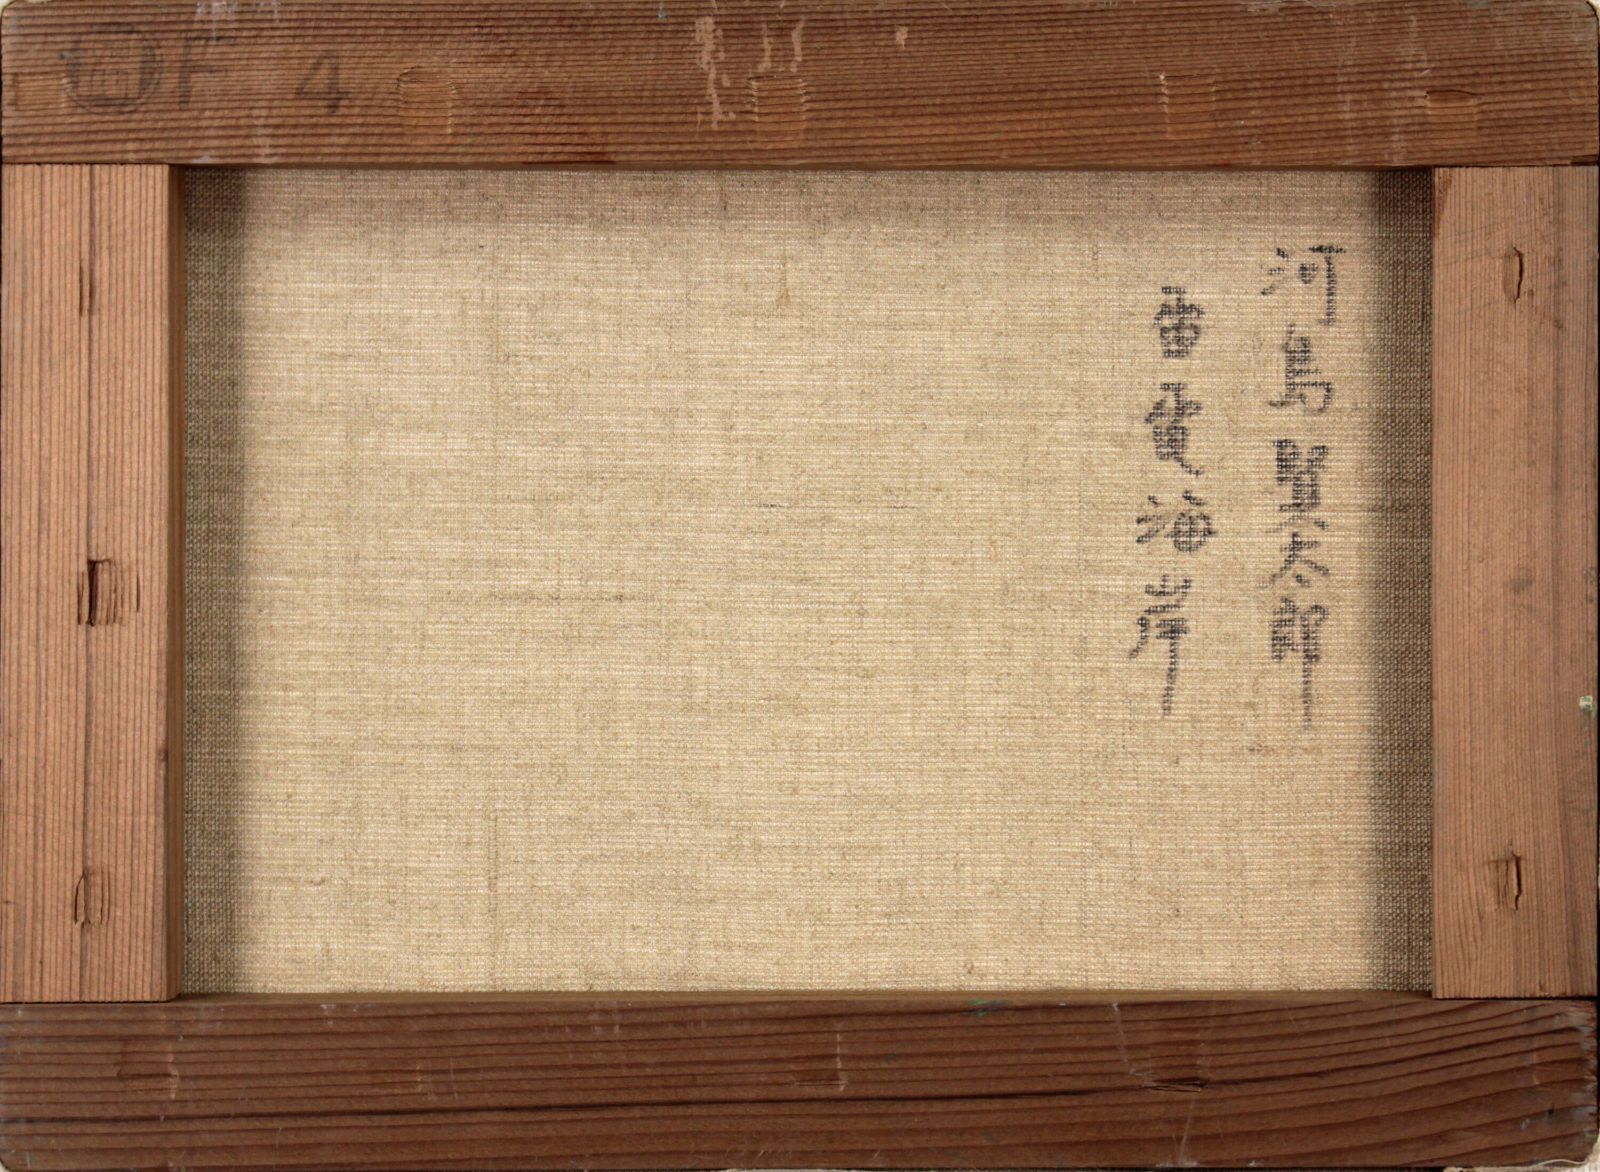 F 4
河島賢太郎
雷電海岸